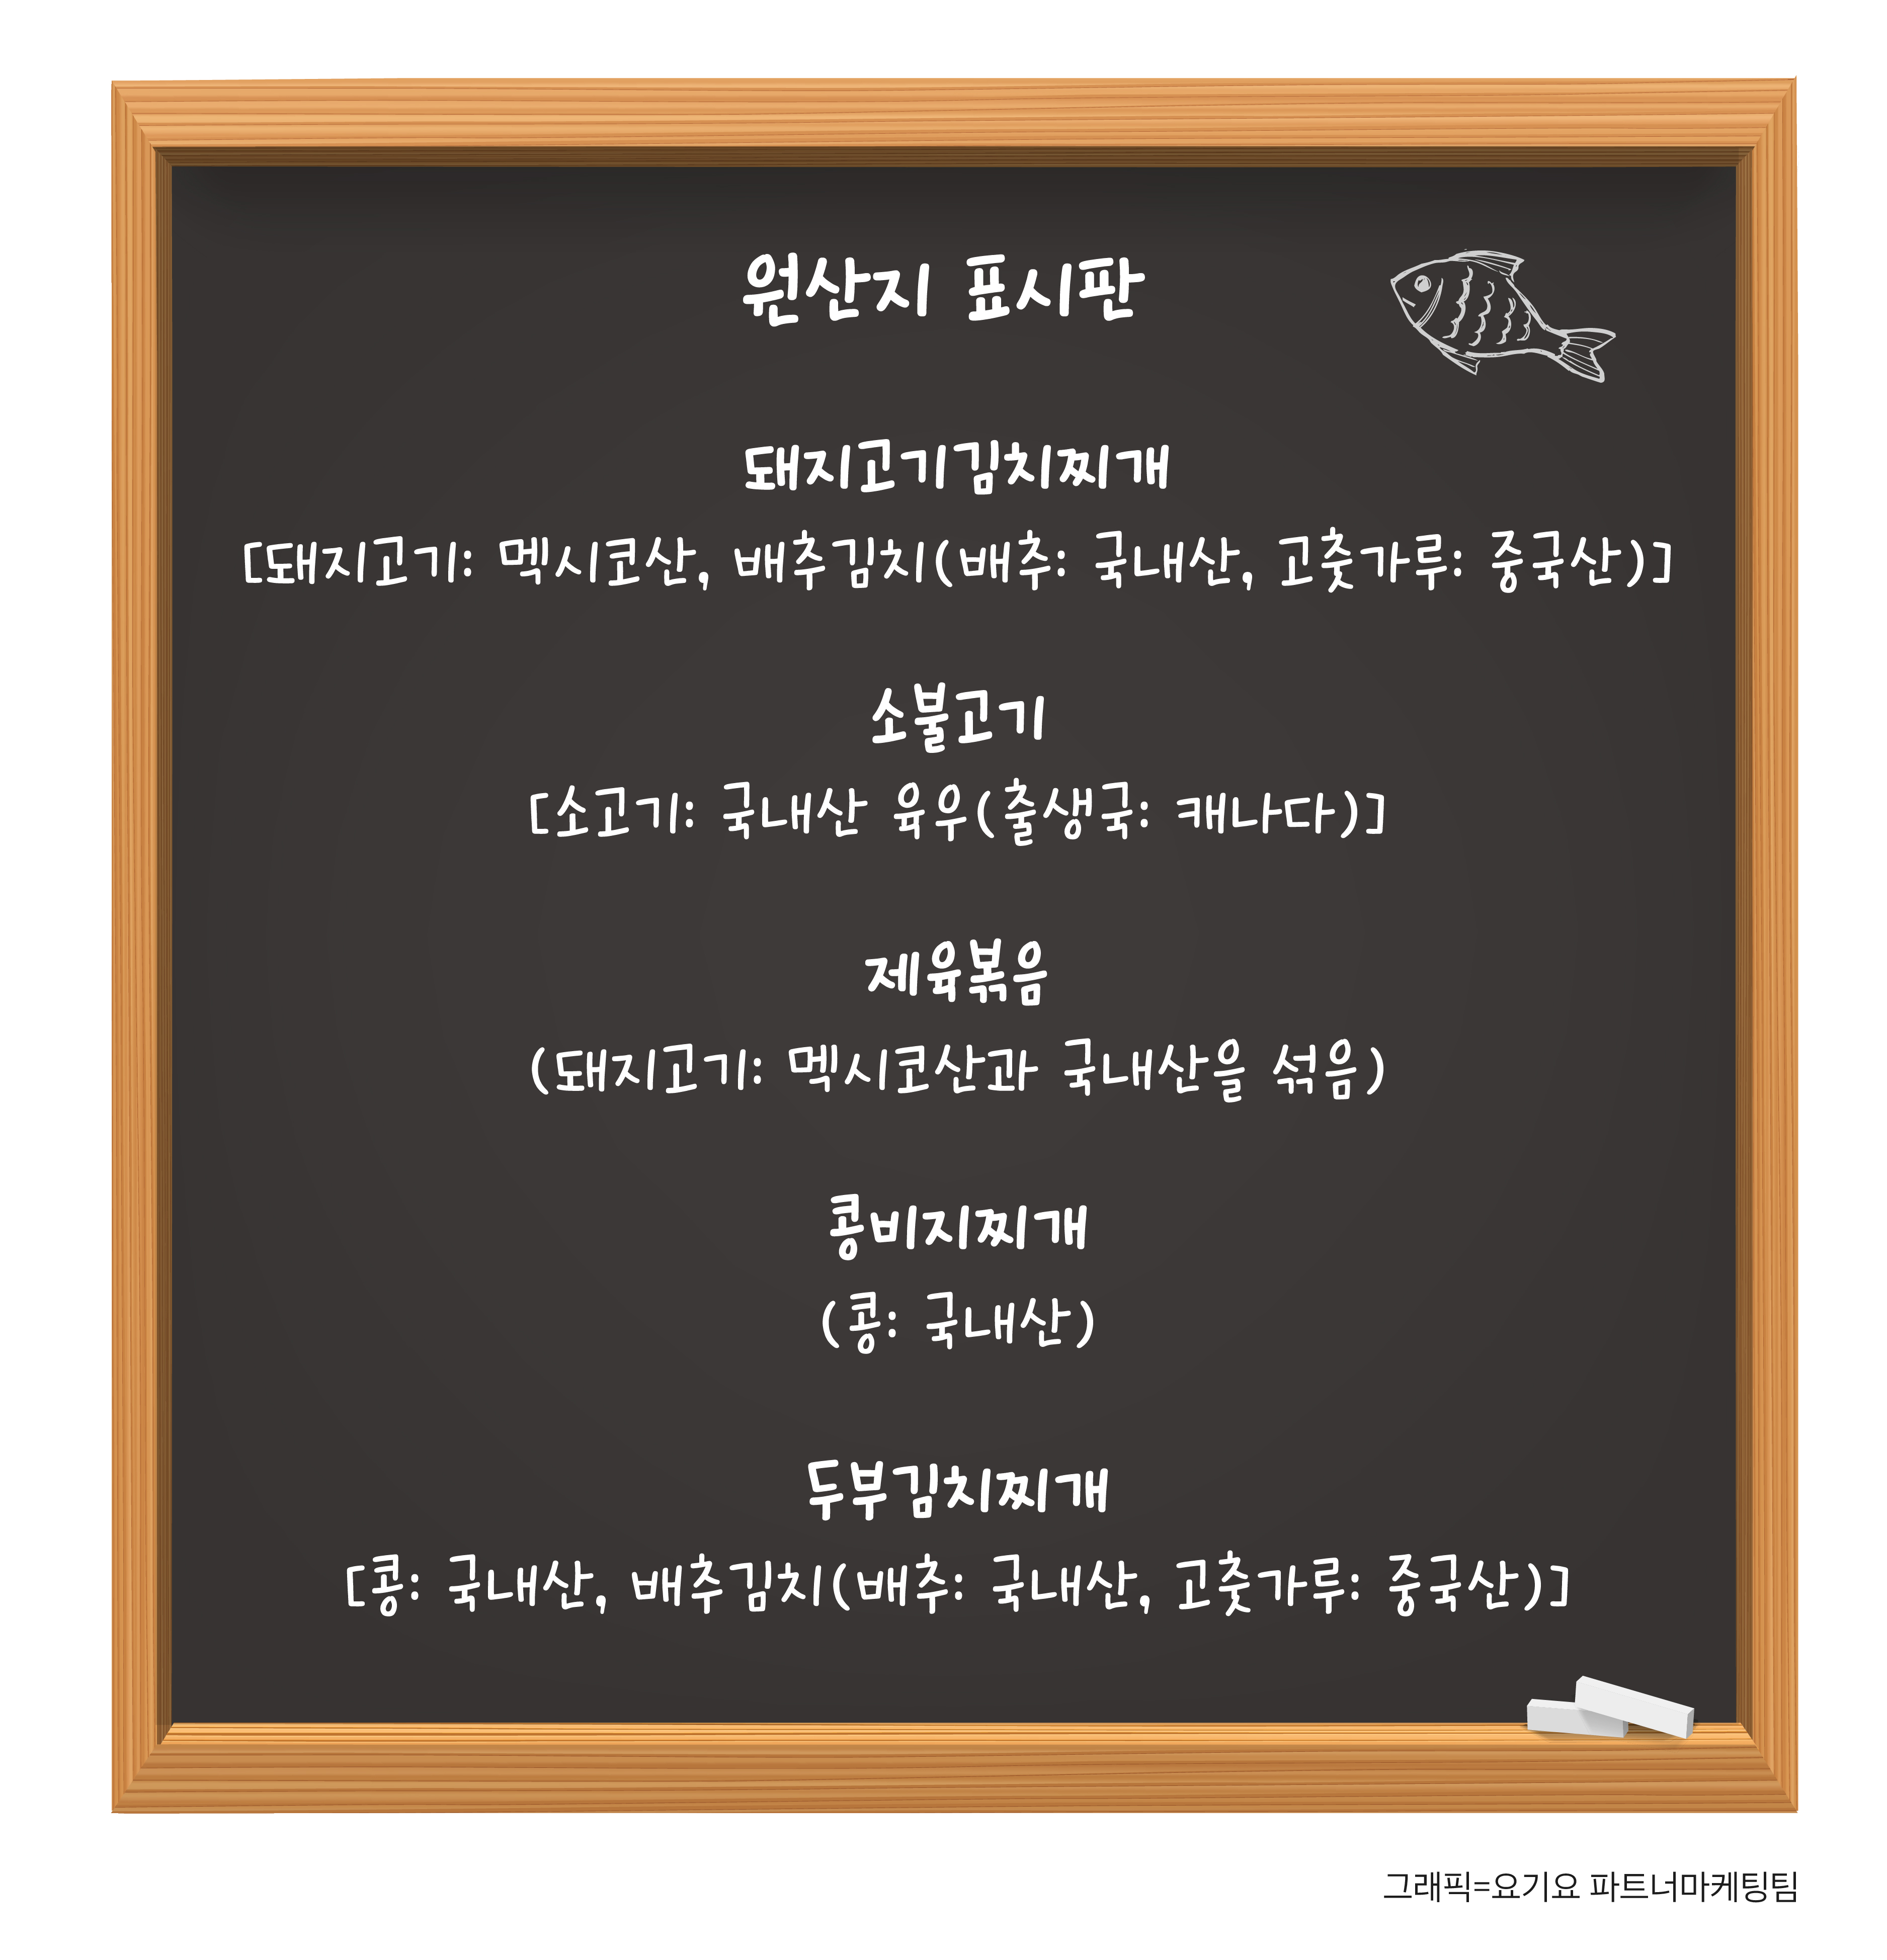 원산지 표시판
돼지고기김치찌개
[돼지고기: 멕시코산, 배추김치(배추: 국내산, 고춧가루: 중국산)]
소불고기
[소고기: 국내산 육우(출생국: 캐나다)]
제육볶음
(돼지고기: 멕시코산과 국내산을 섞음)
콩비지찌개
(콩: 국내산)
두부김치찌개
[콩: 국내산, 배추김치(배추: 국내산, 고춧가루: 중국산)]
그래픽=요기요 파트너마케팅팀